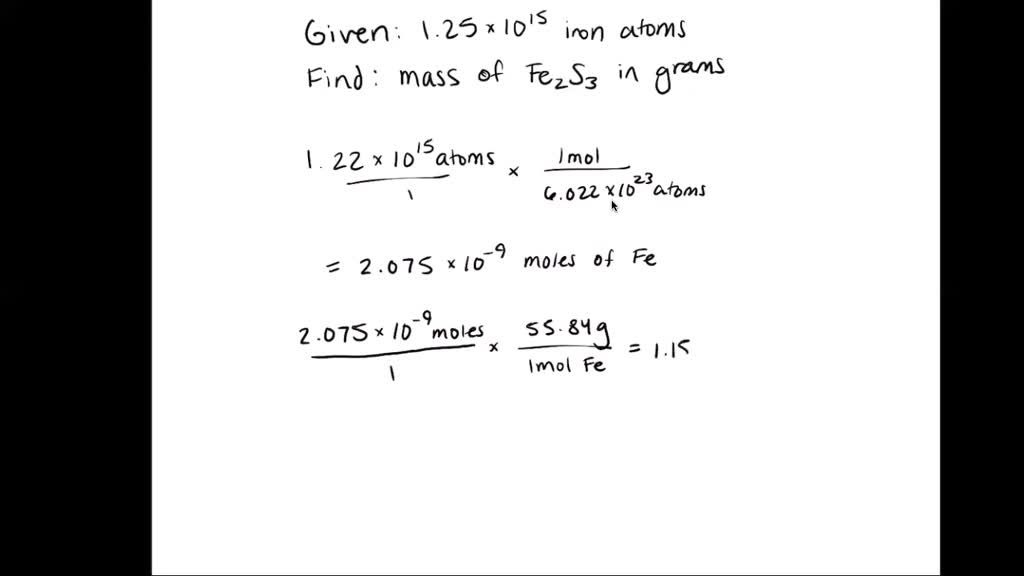 Given: 1.25 × 10^15 iron atoms
Find: mass of Fe₂S₃ in grams
1.22 × 10^15 atoms / 1 × 1mol / 6.022 × 10^23 atoms
= 2.075 × 10^-9 moles of Fe
2.075 × 10^-9 moles / 1 × 55.84g / 1mol Fe = 1.15